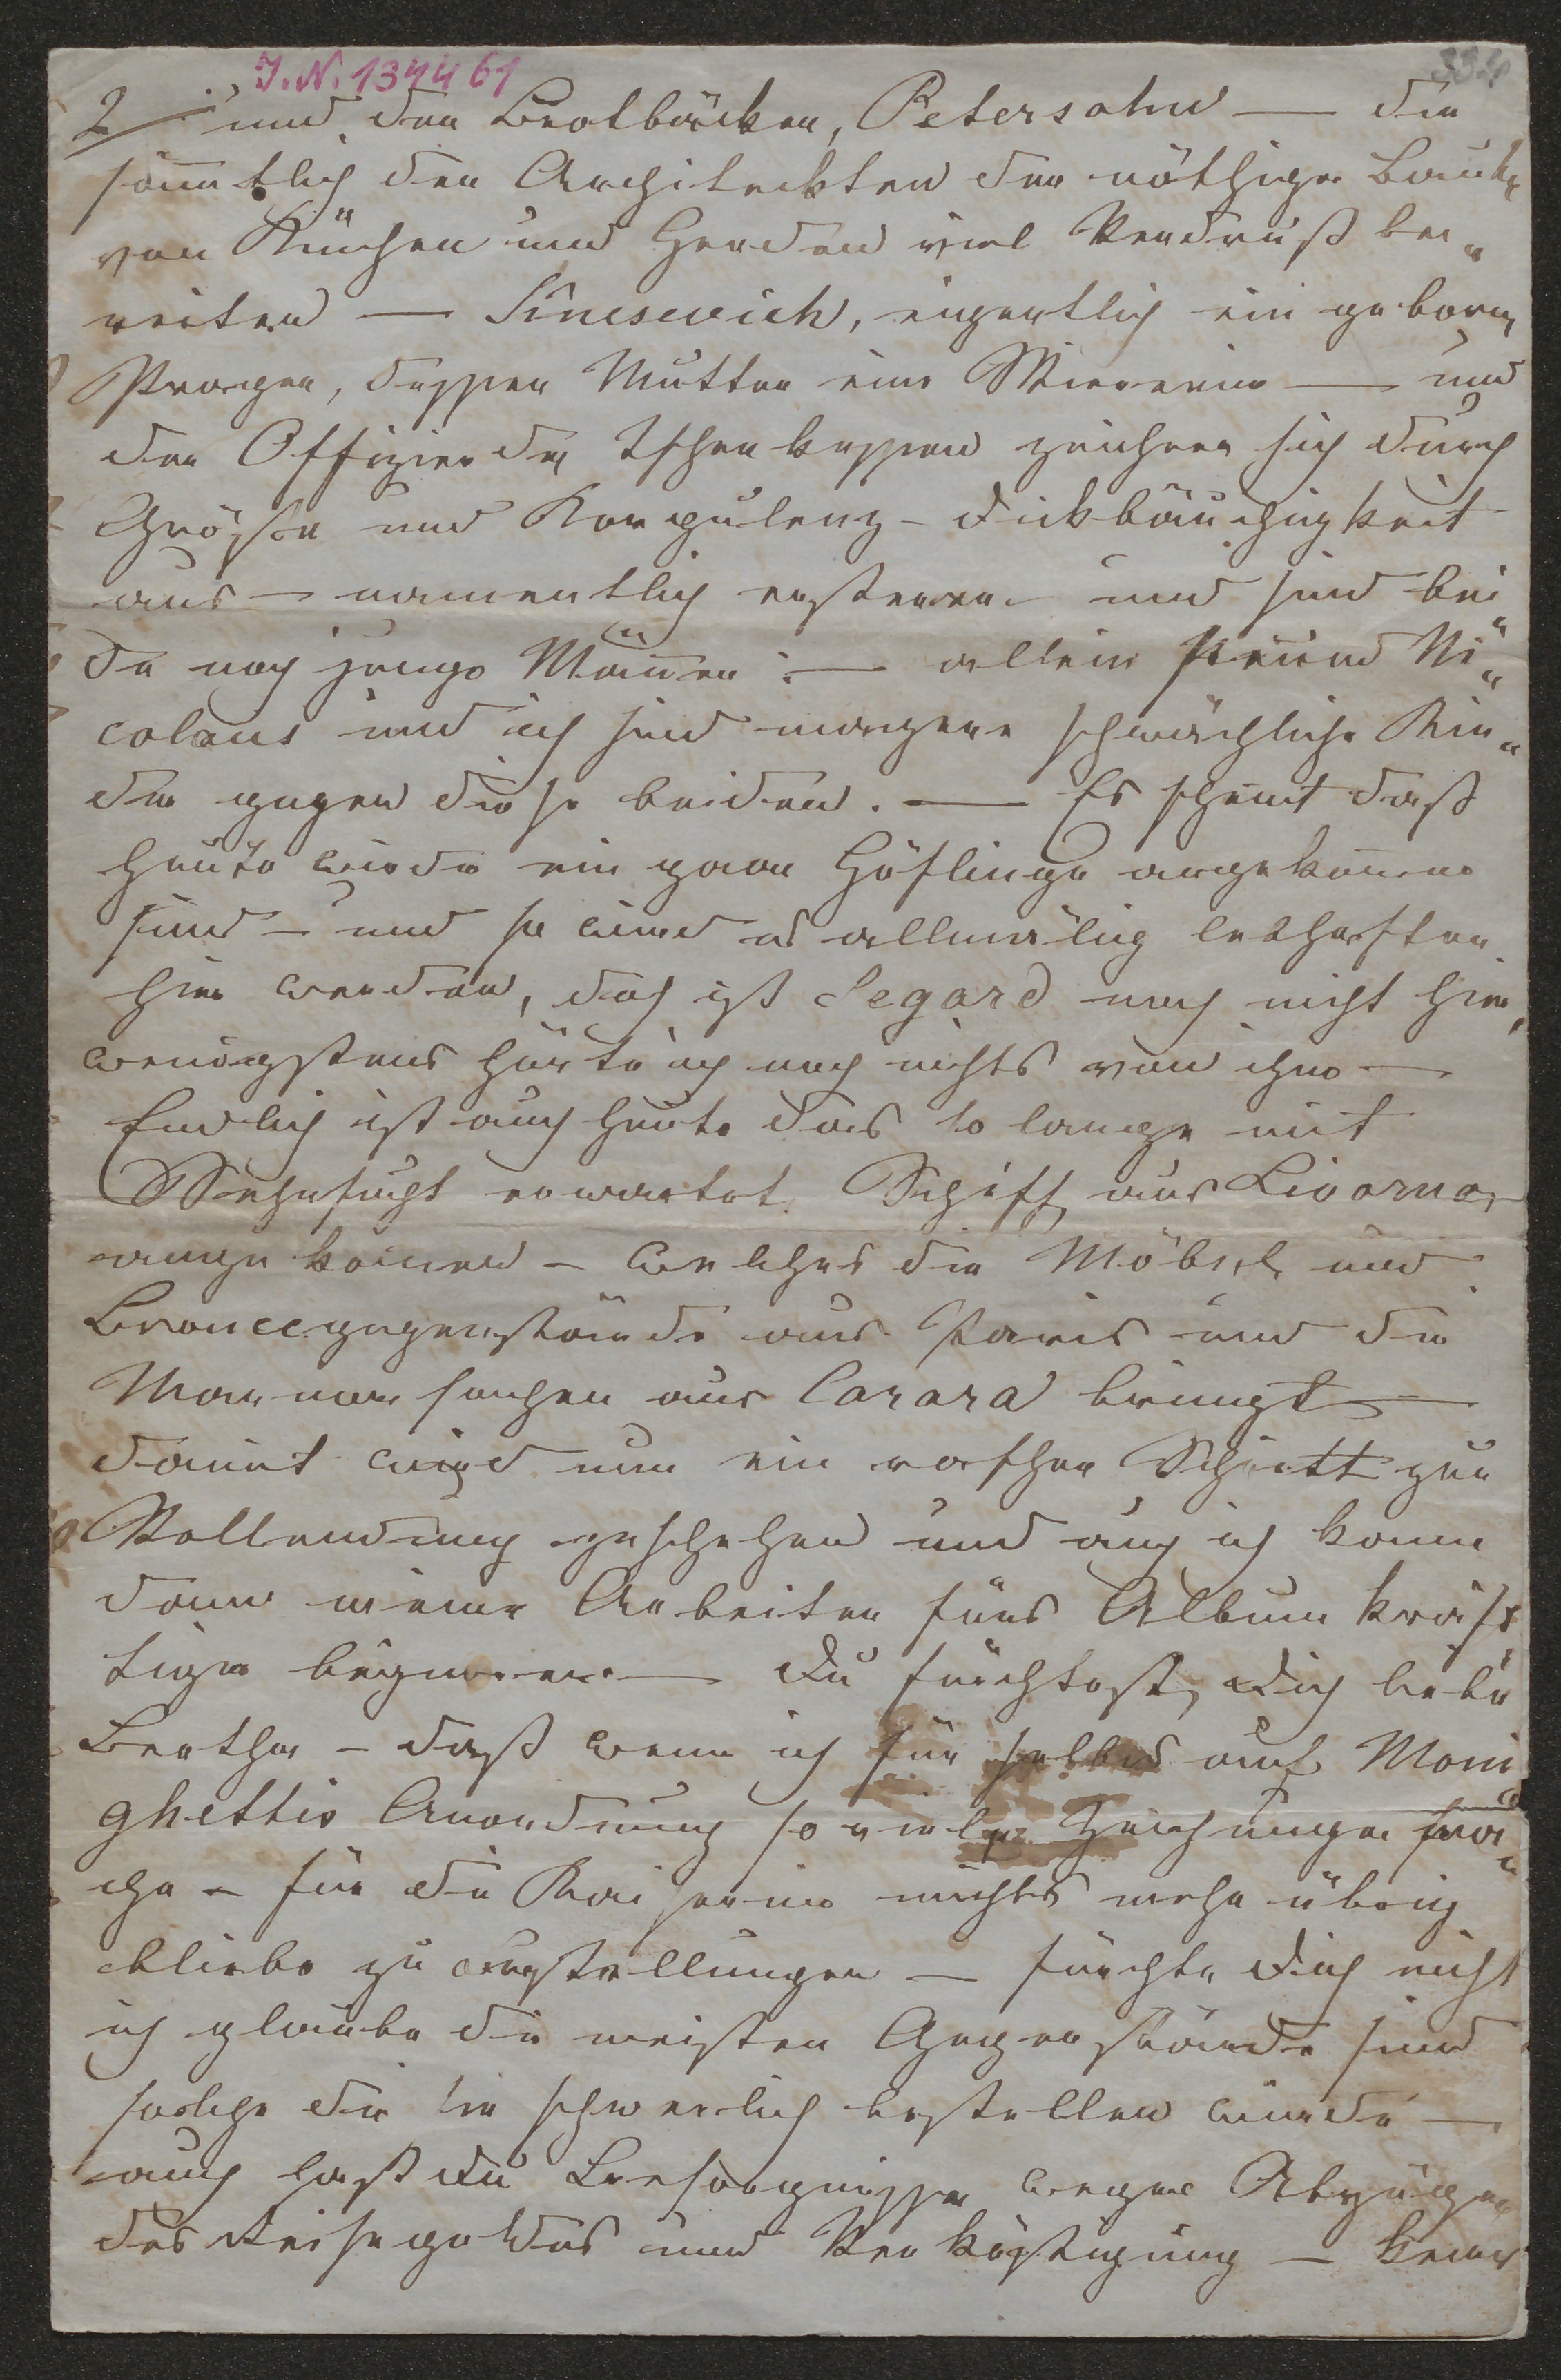 J. N. 134461
334
2/. und den Brotbäcker, Petersohn — die
sämtlich den Architeckten der nöthigen Baute
von Küchen und Herden viel Verdruß be„
reiten — Sinesewich, eigentlich ein geborn
Prager, dessen Mutter eine Wienerin — und
der Offizier der Tscherkessen zeichnen sich durch
Größe und Korpulenz – Dickbäuchigkeit
aus – namentlich ersterer – und sind bei„
de noch junge Männer: — allein Freund Ni„
colaus und ich sind magere schwächliche Kin„
der gegen diese beiden. — Es scheint daß
heute wieder ein paar Höflinge angekommen
sind – und so wird es allmälig lebhafter
hier werden, doch ist Segard noch nicht hier,
wenigstens hörte ich noch nichts von ihm —
Endlich ist auch heute das so lange mit
Sehnsucht erwartet Schiff aus Livorno
angekommen – welches die Möbel und
Broncegegenstände aus Paris und die
Marmor sachen aus Carara bringt —
damit wird nun ein rascher Schritt zur
Vollendung geschehen und auch ich kann
dann meine Arbeiten fürs Album kräf
tiger beginnen — Du fürchtest Dich liebe
Bertha – daß wenn ich für selbes auf Moni„
ghettis Anordnung so viele Zeichnungen ma„
che – für die Kaiserin nichts mehr übrig
bliebe zu Bestellungen — fürchte Dich nicht
ich glaube die meisten Gegenstände sind
solche die sie schwerlich bestellen würde —
auch hast Du Besorgnisse wegen Abzügen
des Reisegeldes und Verköstigung — keine